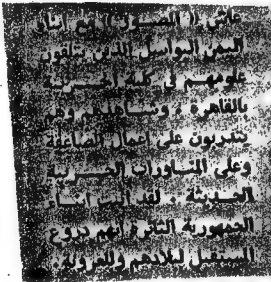 عاش (( المصور )) مع أبناء
اليمن البواسل الذين يتلقون
علومهم في كلية الحربية
بالقاهرة ، وشاهدهم وهم
يتدربون على أعمال الصاعقة
وعلى المناورات الحربية
الحديثة . لقد أثبت أبناء
الجمهورية الثائرة أنهم دروع
المستقبل لبلادهم وللعروبة